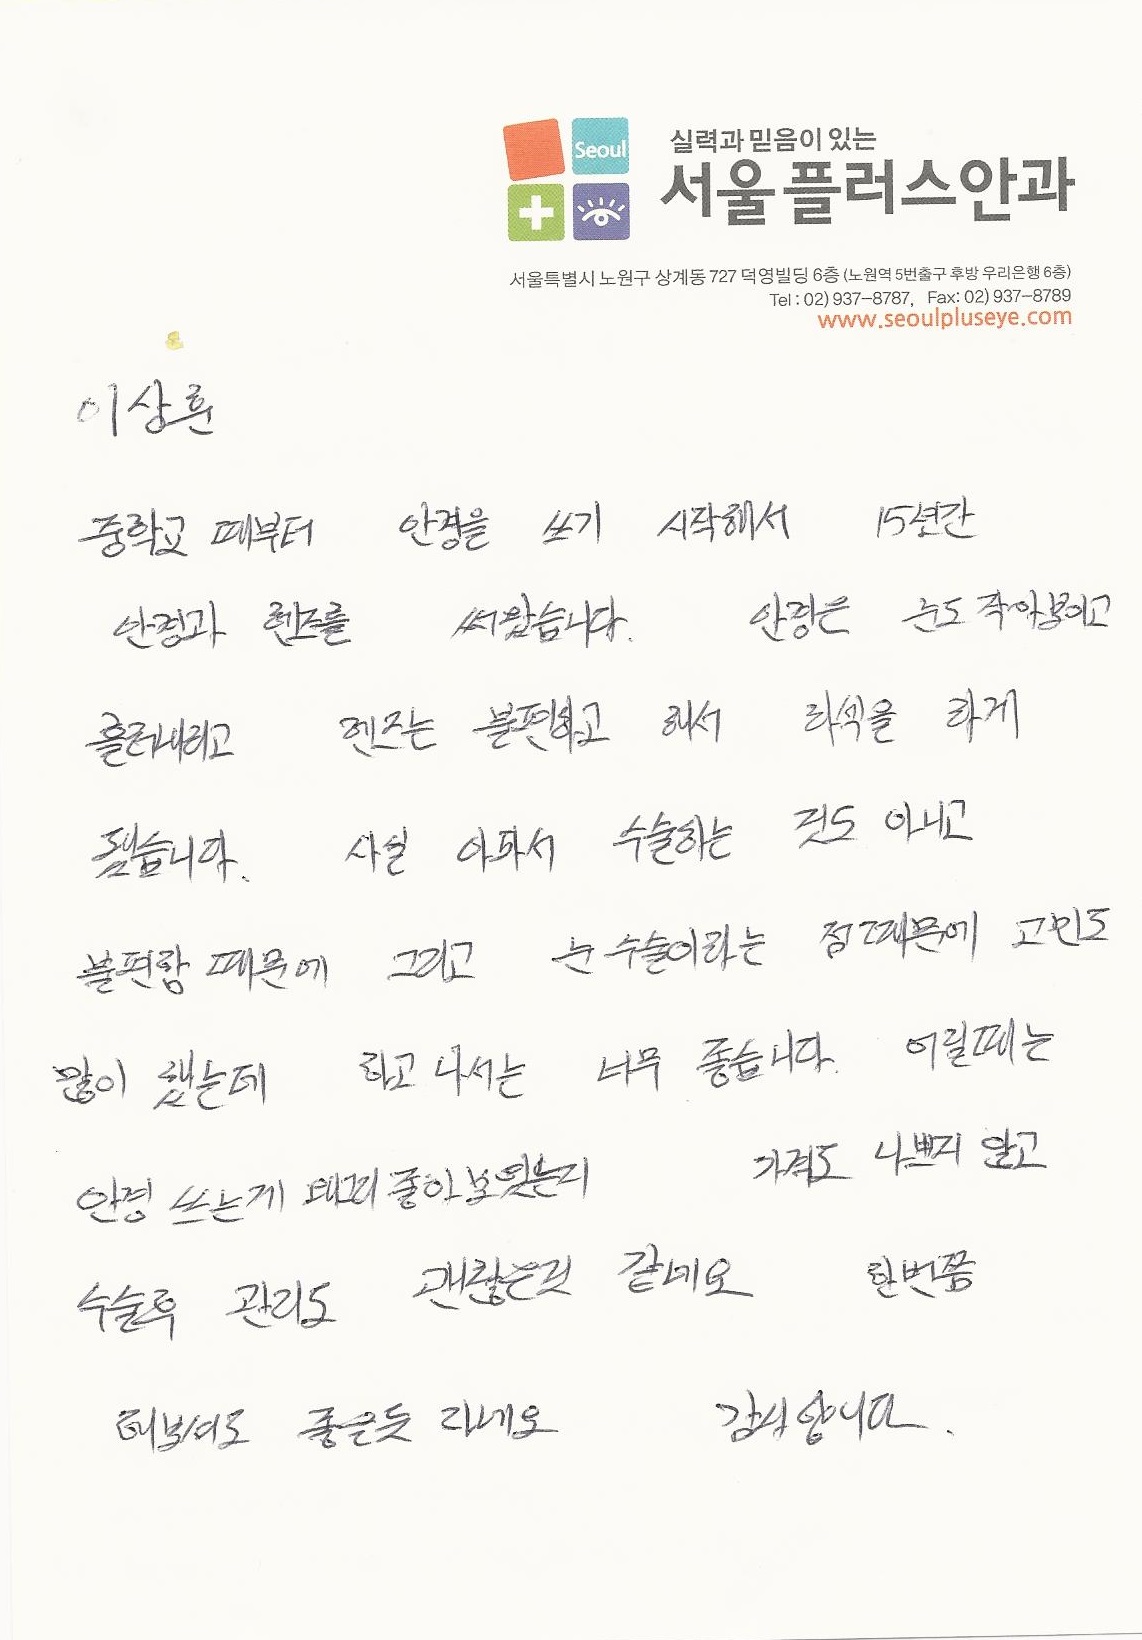 Seoul
실력과 믿음이 있는
서울플러스안과
서울특별시 노원구 상계동 727 덕영빌딩 6층 (노원역 5번출구 후방 우리은행 6층)
Tel : 02) 937-8787, Fax: 02) 937-8789
www.seoulpluseye.com
이상훈
중학교 때부터 안경을 쓰기 시작해서 15년간
안경과 렌즈를 써왔습니다. 안경은 눈도 작아보이고
흘러내리고 렌즈는 불편하고 해서 라식을 하게
됐습니다. 사실 아파서 수술하는 것도 아니고
불편함 때문에 그리고 눈 수술이라는 점 때문에 고민도
많이 했는데 하고 나서는 너무 좋습니다. 어릴때는
안경 쓰는게 왜그리 좋아 보였는지 가격도 나쁘지 않고
수술후 관리도 괜찮은것 같네요 한번쯤
해보셔도 좋은듯 하네요 감사합니다.